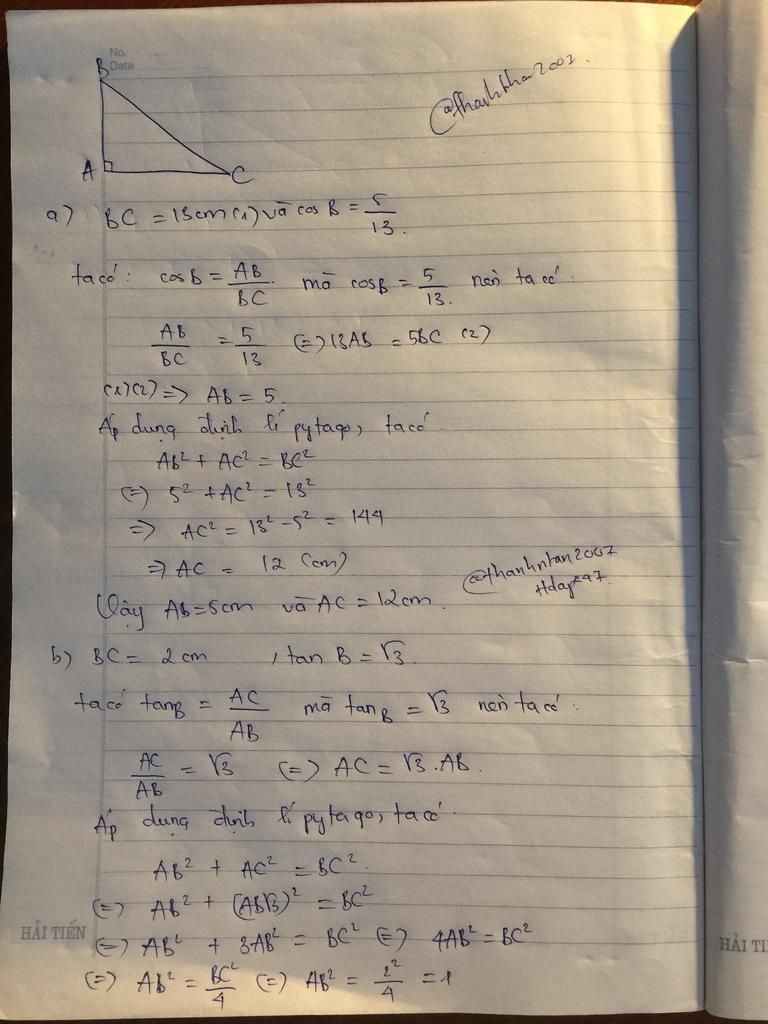 No.
Date
B
@thanhtha2001.
A
C
a) BC = 13cm (1) và cos B = 5/13.
ta có: cosB = AB/BC. mà cosB = 5/13. nên ta có:
AB/BC = 5/13 (=) 13AB = 5BC (2)
(1)(2) => AB = 5.
Áp dụng định lí pytago, ta có
AB² + AC² = BC²
(=) 5² + AC² = 13²
=> AC² = 13² - 5² = 144
=> AC = 12 (cm)
@thanhntan2007
Vậy AB = 5cm và AC = 12cm.
b) BC = 2 cm , tan B = √3.
ta có tanB = AC/AB mà tanB = √3 nên ta có:
AC/AB = √3 (=) AC = √3.AB.
Áp dụng định lí pytago, ta có.
AB² + AC² = BC².
(=) AB² + (AB√3)² = BC²
HẢI TIẾN
(=) AB² + 3AB² = BC² (=) 4AB² = BC²
HẢI TI
(=) AB² = BC²/4 (=) AB² = 2²/4 = 1